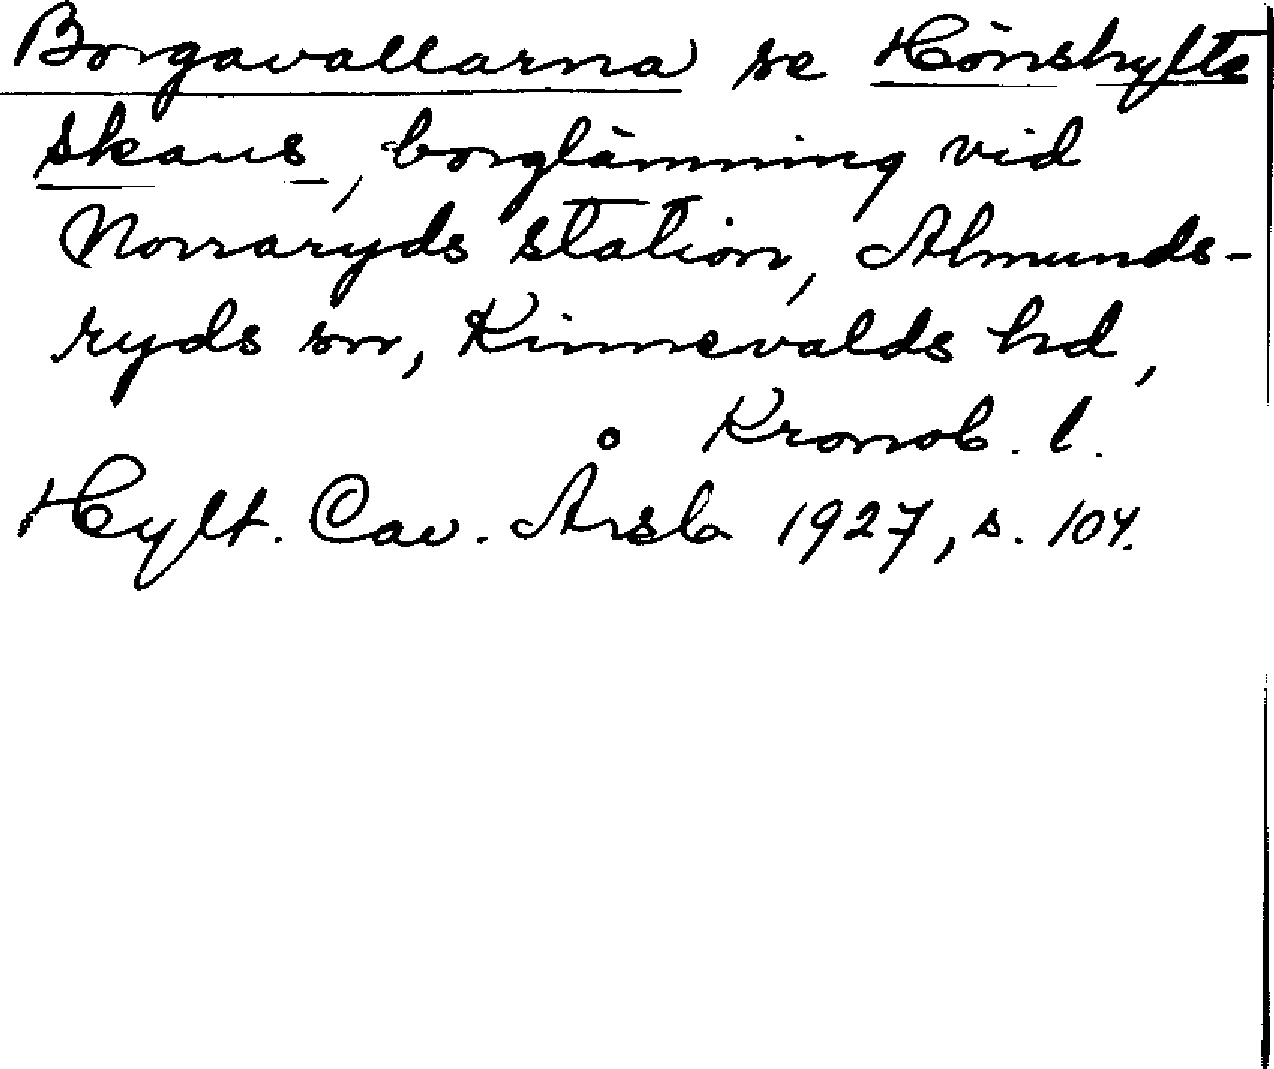 Borgavallarna se Hönshyfte
skans, borglämning vid
Norraryds station, Almunds-
ryds sn, Kinnevalds hd,
Kronob. l.
Hylt. Cav. Årsb 1927, s. 104.